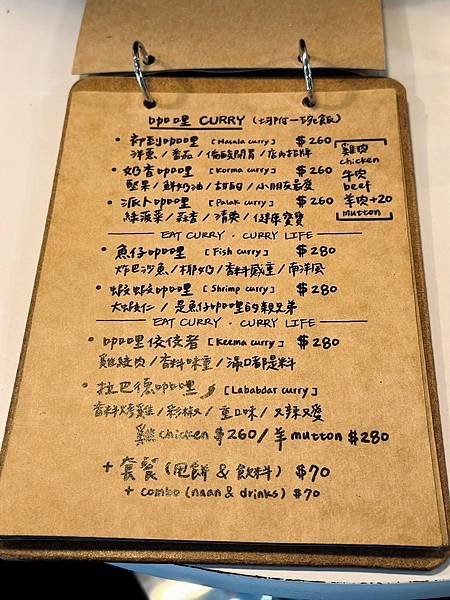 咖哩 CURRY (均附一碗飯)
• 初到咖哩 [Masala curry] $260
洋蔥/番茄/微酸開胃/店內招牌
• 奶香咖哩 [Korma curry] $260
堅果/鮮奶油/甜/小朋友最愛
• 派卜咖哩 [Palak curry] $260
綠菠菜/蒜香/清爽/健康寶寶
雞肉
chicken
牛肉
beef
羊肉+20
mutton
EAT CURRY · CURRY LIFE
• 魚仔咖哩 [Fish curry] $280
炸巴沙魚/椰奶/香料感重/南洋風
• 蝦蝦咖哩 [Shrimp curry] $280
大蝦仁/是魚仔咖哩的親兄弟
EAT CURRY · CURRY LIFE
• 咖哩佼佼者 [Keema curry] $280
雞絞肉/香料味重/滿口都是料
• 拉巴德咖哩 [Lababdar curry]
香料烤雞/彩椒/重口味/又辣又愛
雞 chicken $260/羊 mutton $280
+ 套餐 (甩餅 & 飲料) $70
+ combo (naan & drinks) $70